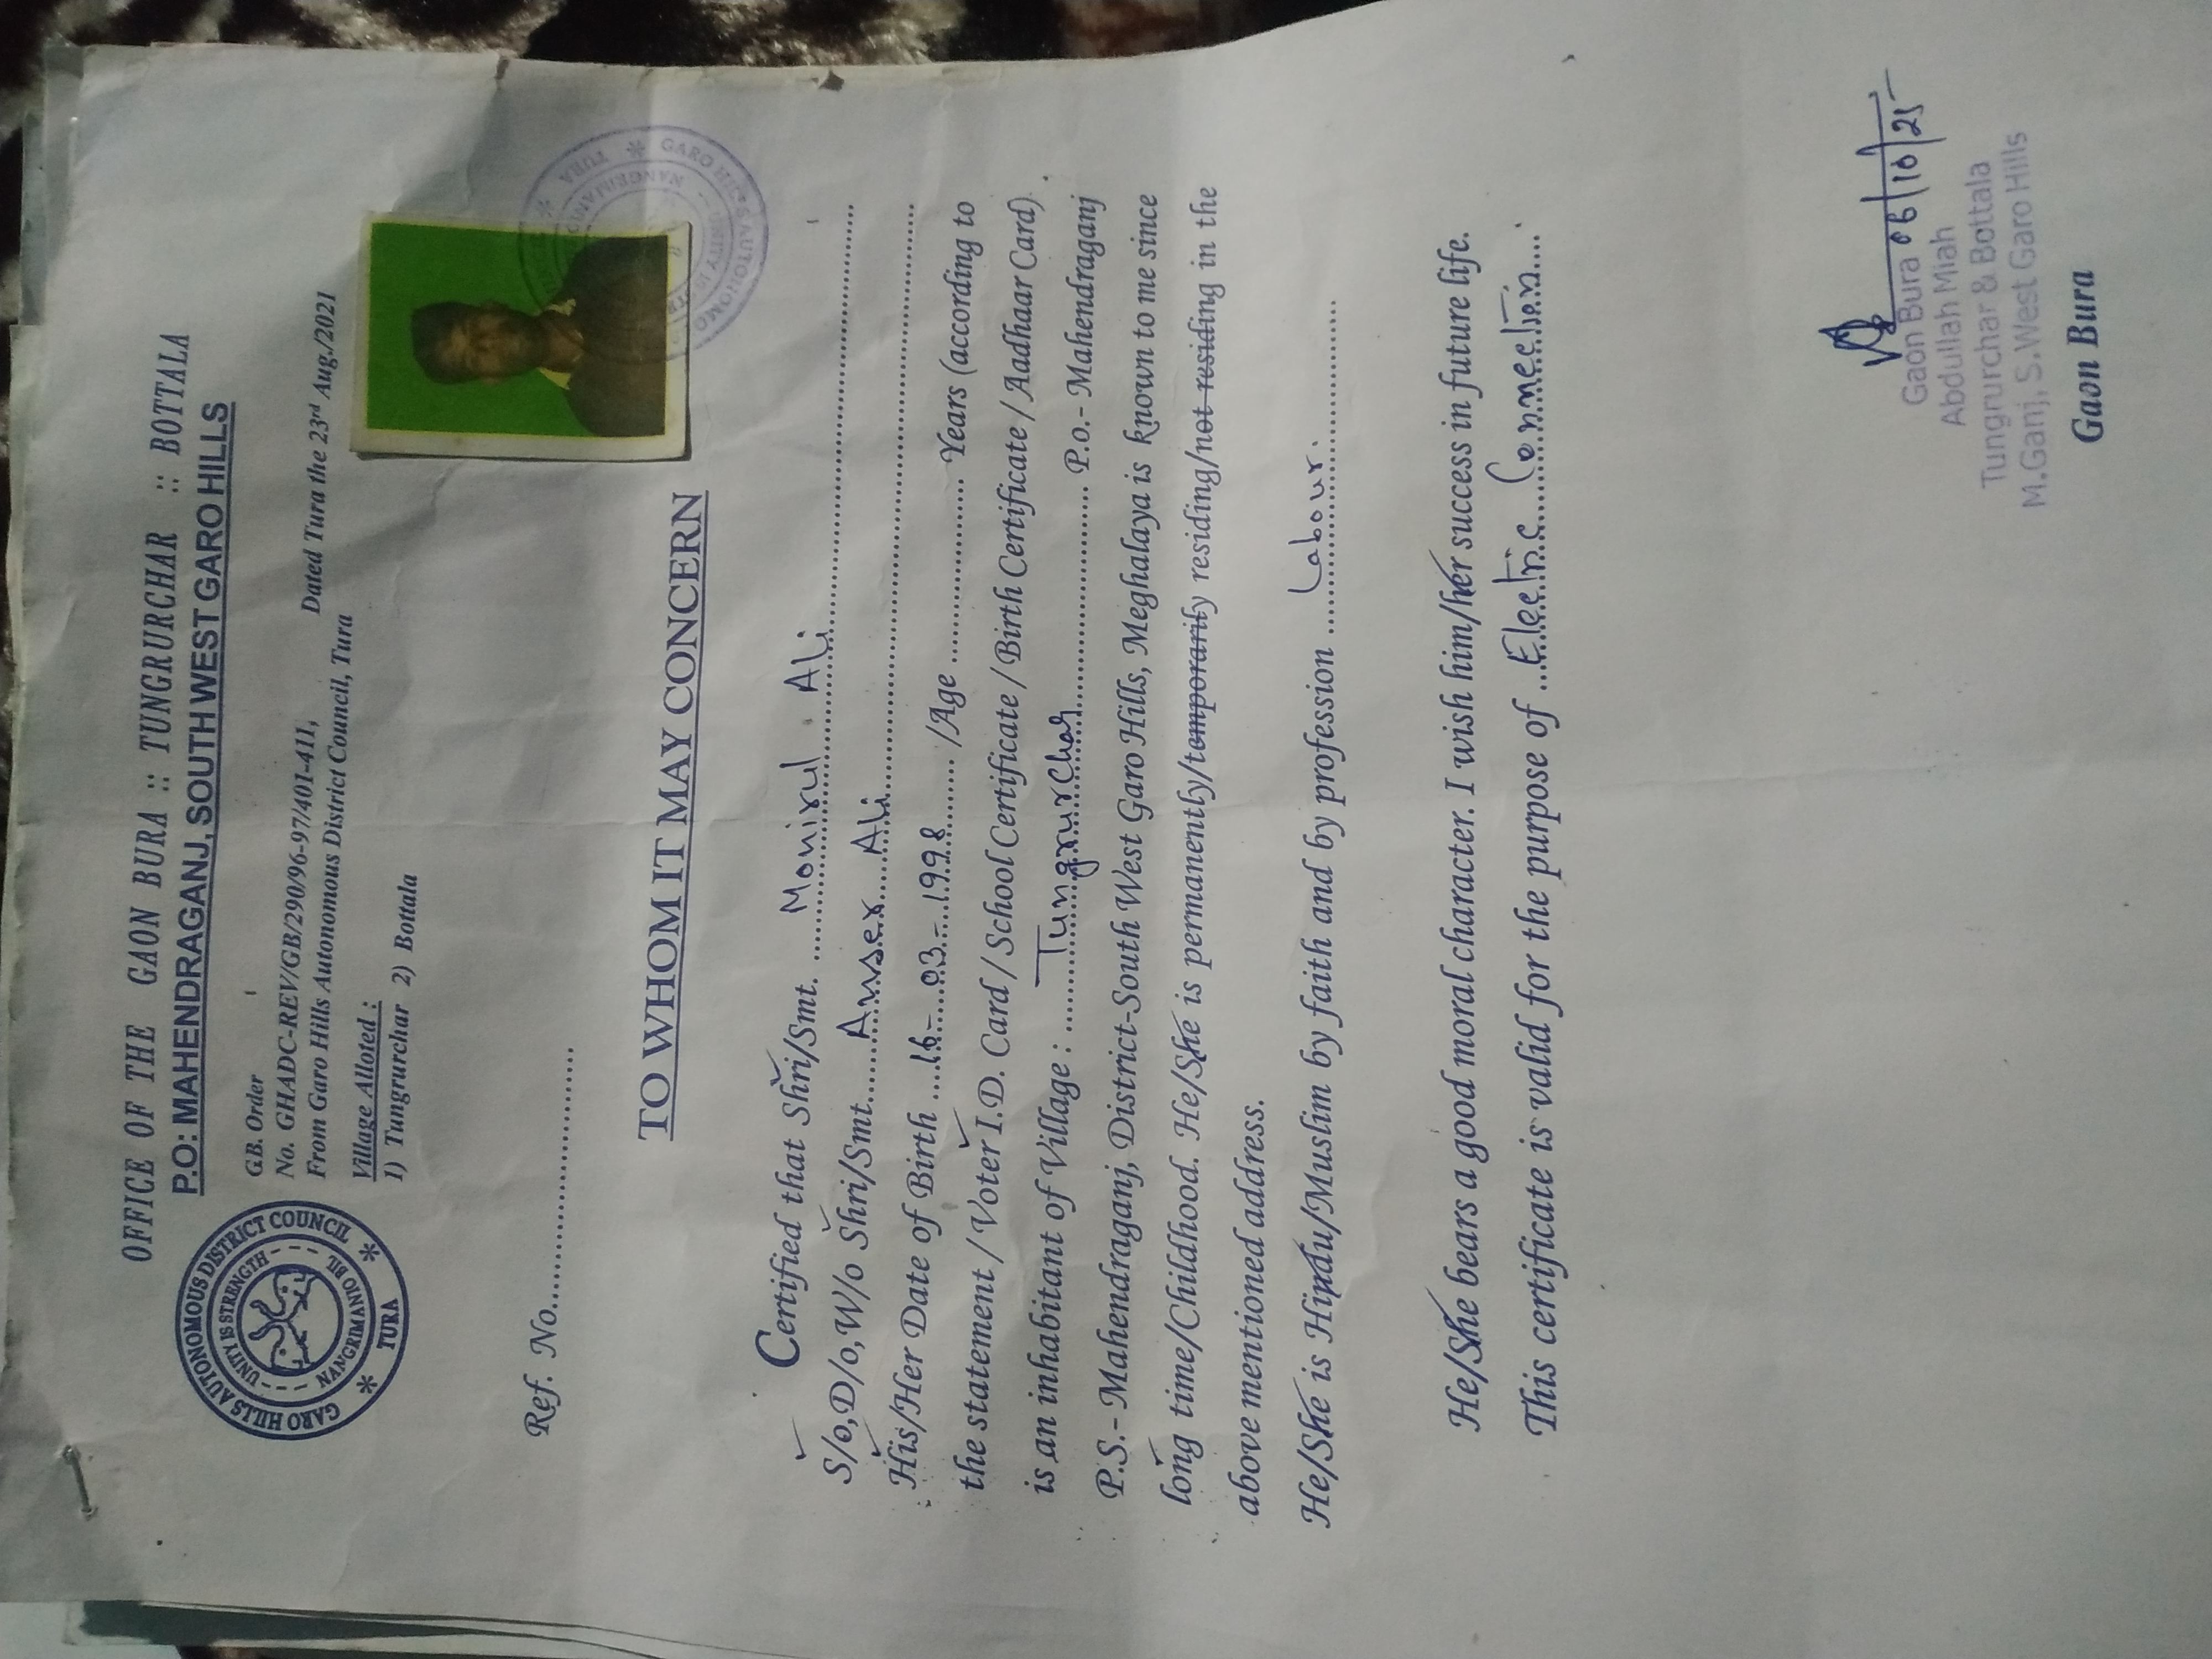 OFFICE OF THE GAON BURA :: TUNGRURCHAR :: BOTTALA
P.O: MAHENDRAGANJ, SOUTH WEST GARO HILLS
GARO HILLS AUTONOMOUS DISTRICT COUNCIL
UNITY IS STRENGTH
TURA
G.B. Order
No. GHADC-REV/GB/290/96-97/401-411, Dated Tura the 23rd Aug./2021
From Garo Hills Autonomous District Council, Tura
Village Alloted :
1) Tungrurchar 2) Bottala
Ref. No..............................
TO WHOM IT MAY CONCERN
Certified that Shri/Smt. ...... Monirul Ali ......
S/o,D/o,W/o Shri/Smt...... Anser Ali ......
His/Her Date of Birth ....16-03-1998......... /Age .................. Years (according to
the statement / Voter I.D. Card / School Certificate / Birth Certificate / Aadhaar Card)
is an inhabitant of Village : ...... Tungrurchar ...... P.o.- Mahendraganj
P.S.- Mahendraganj, District-South West Garo Hills, Meghalaya is known to me since
long time/Childhood. He/She is permanently/temporarily residing/not residing in the
above mentioned address.
He/She is Hindu/Muslim by faith and by profession ...... Labour. ......
He/She bears a good moral character. I wish him/her success in future life.
This certificate is valid for the purpose of ...Electric Connection....
06/10/25
Gaon Bura
Abdullah Miah
Tungrurchar & Bottala
M.Ganj, S.West Garo Hills
Gaon Bura